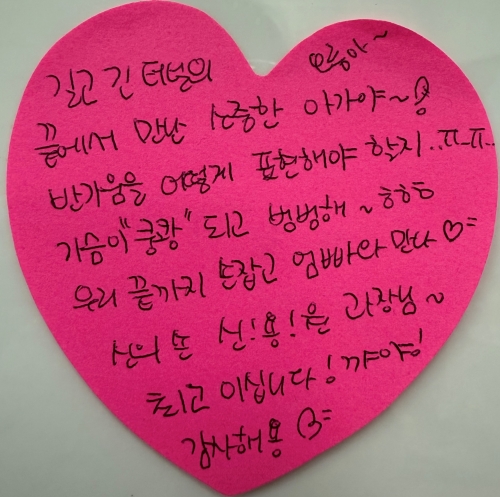 오룡아~
길고 긴 터널의
끝에서 만난 소중한 아가야~용
반가움을 어떻게 표현해야 할지..ㅠ_ㅠ..
가슴이 "쿵쾅" 되고 벙벙해~ㅎㅎㅎ
우리 끝까지 손잡고 엄빠와 만나♡=
신의 손 신!용!운 과장님~
최고 이십니다! 꺄야!
감사해용♡=